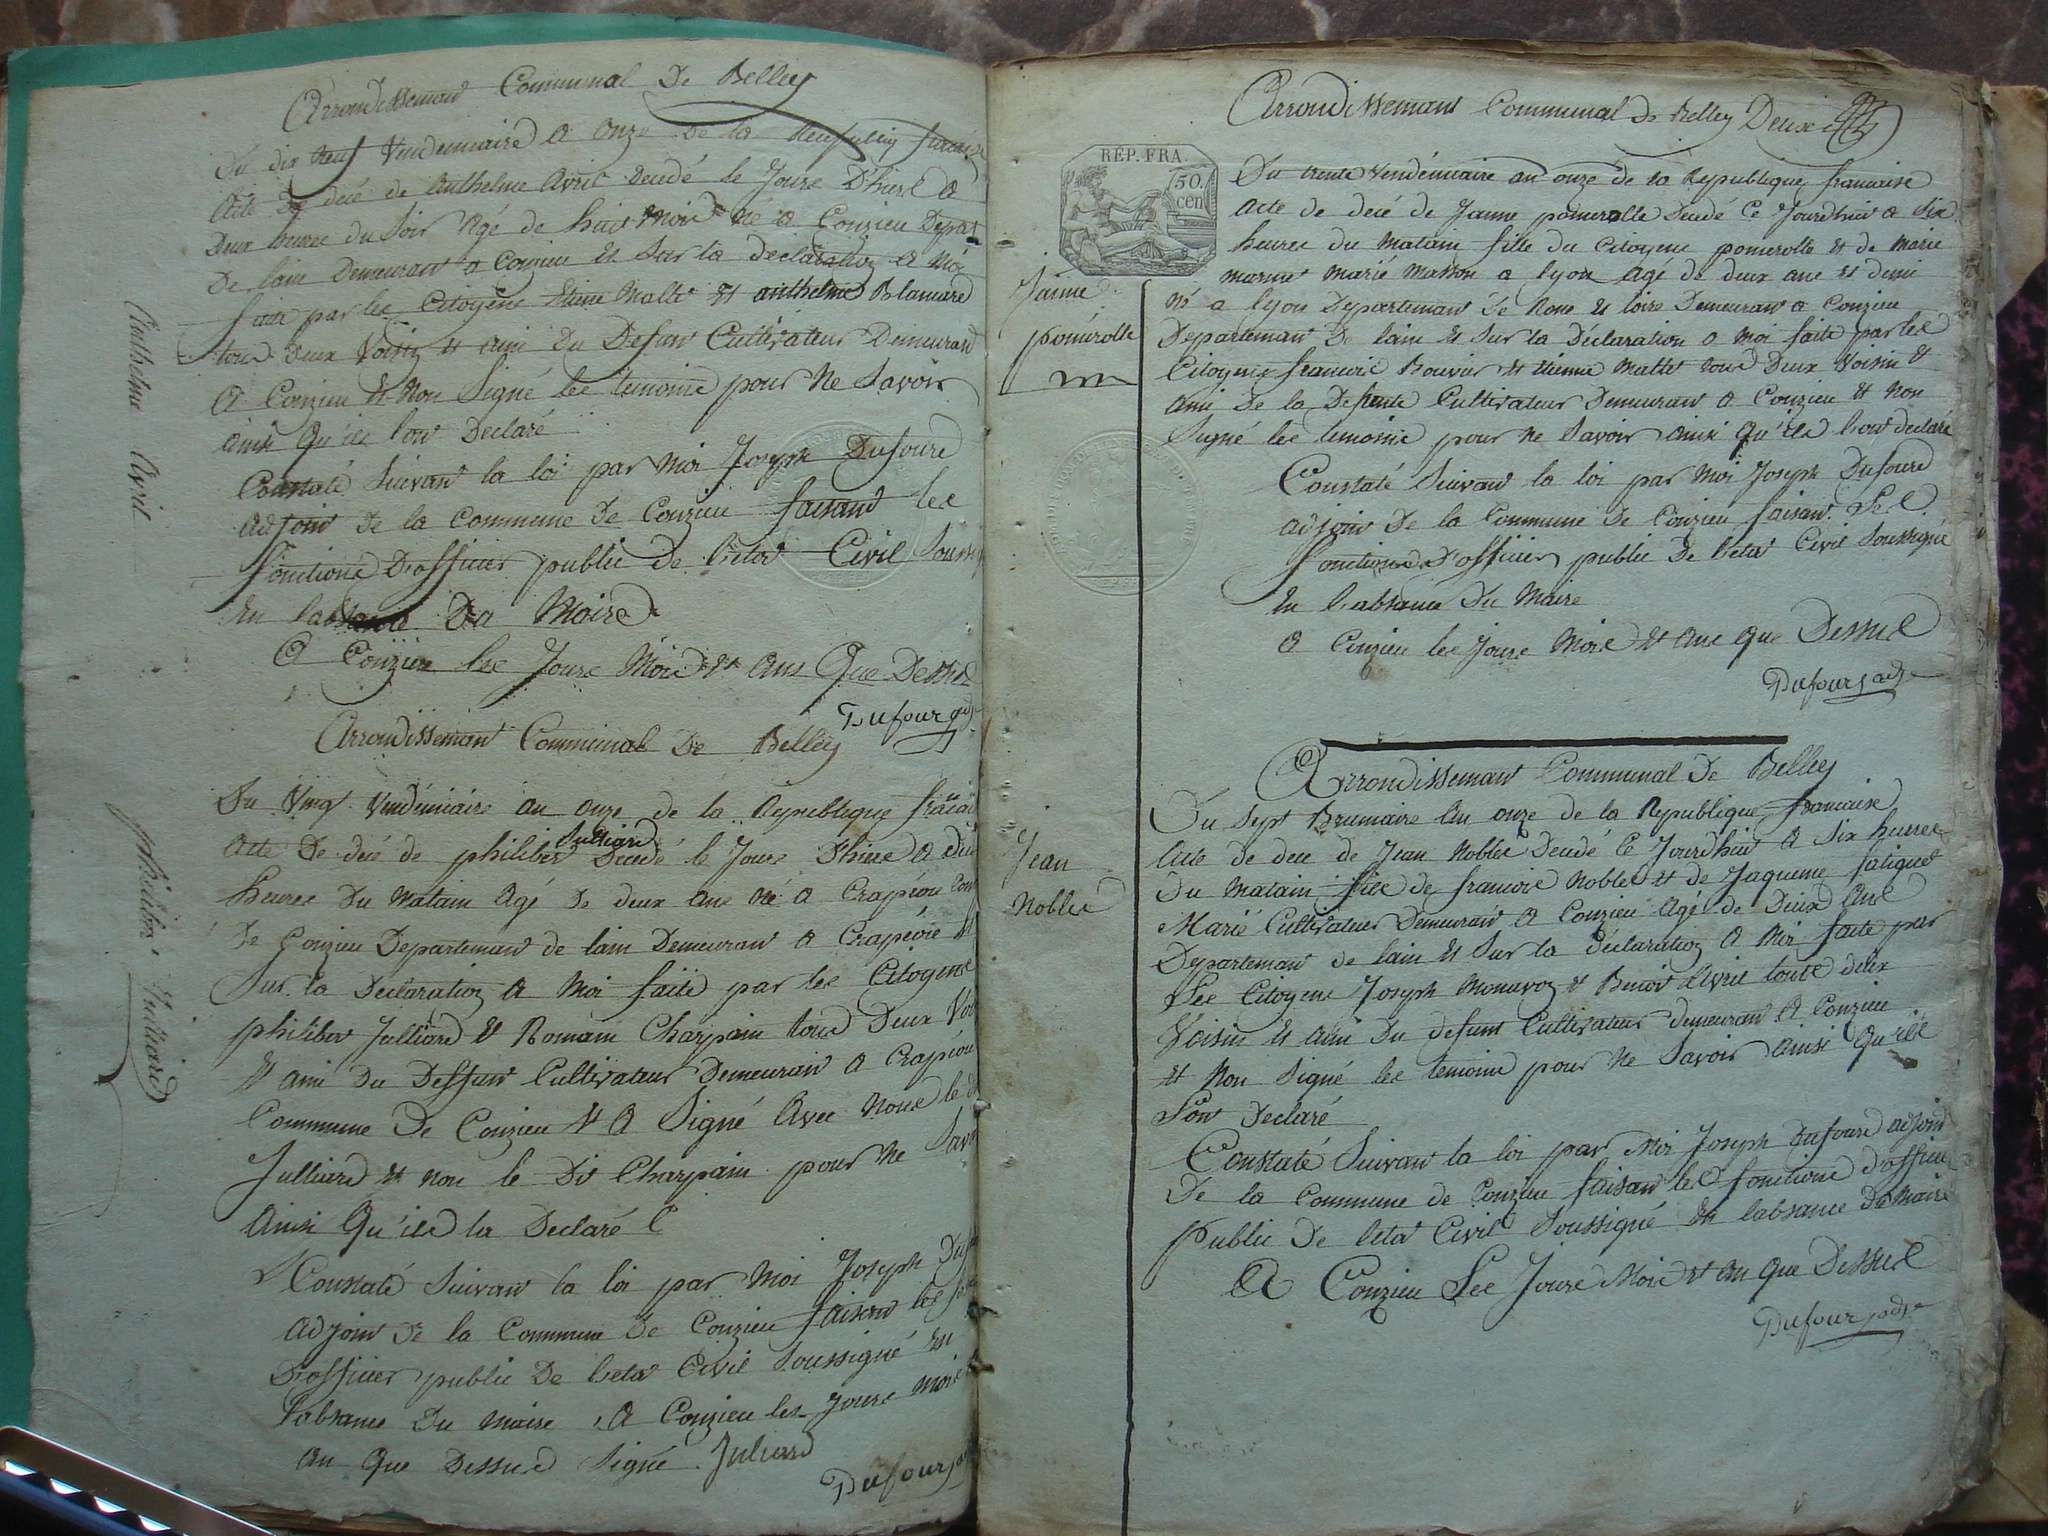 Arrondissemant Communal De Belley
Du dix neuf Vendemiaire a onze De la francaise
Acte De decé de Anthelme Avril Decedé le Jours D'hierl a
Deux heures du Soir Agé de huit Mois né a Conzieu Depar
De lain Demeurant a Conzieu et Sur la declaration a Moi
faite par les Citoyens etiene Mallet et anthelme Blanchard
tous deux Voisin et ami du Defunt Cultivateur Demeurant
A Conzieu et Non Signé les temoins pour Ne Savoir
ainsi Qu'ils lont Declaré
Constaté Suivant la loi par Moi Joseph Dufourd
adjoint De la Commune De Conzieu faisant les
fonctions D'officier public De letat Civil Soussi
En labsance Du Maire
A Conzieu les Jours Mois et Ans Que Dessus
Dufour adj
Anthelme Avril
Arrondissemant Communal De Belley
Du Vingt Vendémiaire an onze de la Republique francai
Julliard
Acte De decé de philibert Decedé le Jours
heures Du Matain Agé De deux Ans Né a Crapéou
De Conzieu Departemant de lain Demeurant a et
Sur la Declaration a Moi faite par les Citoyens
philibert Julliard et Romain Charpain tous Deux
Et ami Du Deffunt Cultivateur Demeurant a Crapéou
Commune De Conzieu et a Signé Avec Nous le
Julliard et non le Dit Charpain pour Ne Sav
Ainsi Qu'ils la Declaré
Constaté Suivant la loi par Moi Joseph Duf
adjoint De la Commune De Conzieu faisant les
D'officier public De letat Civil Soussigné En
labsance Du Maire, A Conzieu les Jours Mois
an Que Dessus Signé Juliard
Dufour
philibert Julliard
Arrondissemant Communal de Belley Deux
RÉP. FRA.
50.
cen
Du trente Vendémiaire an onze de la Republique francaise
Acte de decé de Janne pomerolle Decedé Ce Jourdhui a Six
heures du Matain fille du Citoyens pomerolle et de Marie
marié a lyon Agé de deux ans et demi
Né a lyon Departemant De Rone et loire Demeurant a Conzieu
Departemant De lain et Sur la Declaration a Moi faite par les
Citoyens francois Bouvier et etienne Mattet tous Deux Voisin et
Ami De la Defunte Cultivateur Demeurant a Conzieu et Non
Signé les temoins pour Ne Savoir ainsi Qu'ils lont declaré
Constaté Suivant la loi par Moi Joseph Dufourd
adjoint De la Commune De Conzieu faisant Les
fonctions D'officier public De letat Civil Soussigné
En labsance Du Maire
A Conzieu les Jours Mois et Ans Que Dessus
Dufour adj
Janne
pomérolle
Arrondissemant Communal De Belley
Du Sept Brumaire An onze de la Republique francaise
Acte de dece de Jean Noblet Decedé Ce Jourdhui A Six heures
Du Matain fils de francois Noblet et de Jaqueme fatiguet
Marié Cultivateur Demeurant A Conzieu Agé de Deux Ans
Departemant de lain et Sur la déclaration A Moi faite par
Les Citoyens Joseph Monavoz et Benoit Avril touts deux
Voisin et ami Du defunt Cultivateur demeurant A Conzieu
et Non Signé les temoins pour Ne Savoir Ainsi Qu'ils
Lont Declaré
Constaté Suivant la loi par Moi Joseph Dufourd adjoint
De la Commune de Conzieu faisant les fonctions d'officier
Public De letat Civil Soussigné En labsance De Maire
A Conzieu Les Jours Mois et An Que Dessus
Dufour adj
Jean
Noblet